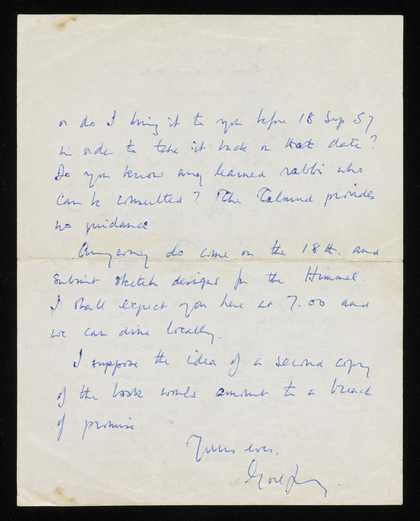 or do I bring it to you before 18 Sep 57
in order to take it back on that date?
Do you know any learned rabbi who
can be consulted? The Talmud provides
no guidance
Anyway do come on the 18th. and
submit sketch designs for the Himmel
I shall expect you here at 7.00 and
we can dine locally.
I suppose the idea of a second copy
of the book would amount to a breach
of promise
Yours ever.